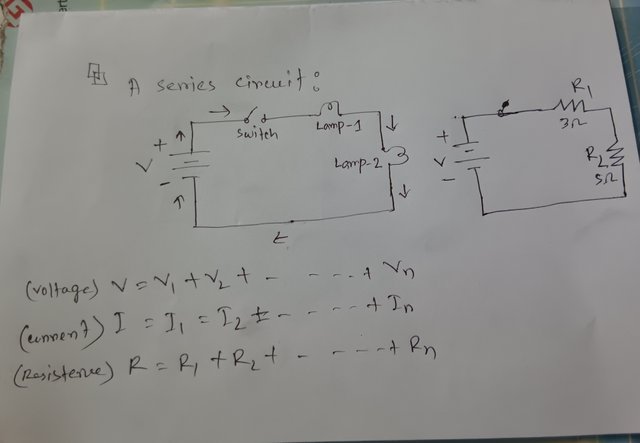 A series circuit:
R1
Switch
Lamp-1
3Ω
+
+
V
Lamp-2
V
R2
5Ω
-
-
(voltage) V = V1 + V2 + - - - - - + Vn
(current) I = I1 = I2 ± - - - - - + In
(Resistence) R = R1 + R2 + - - - - - + Rn